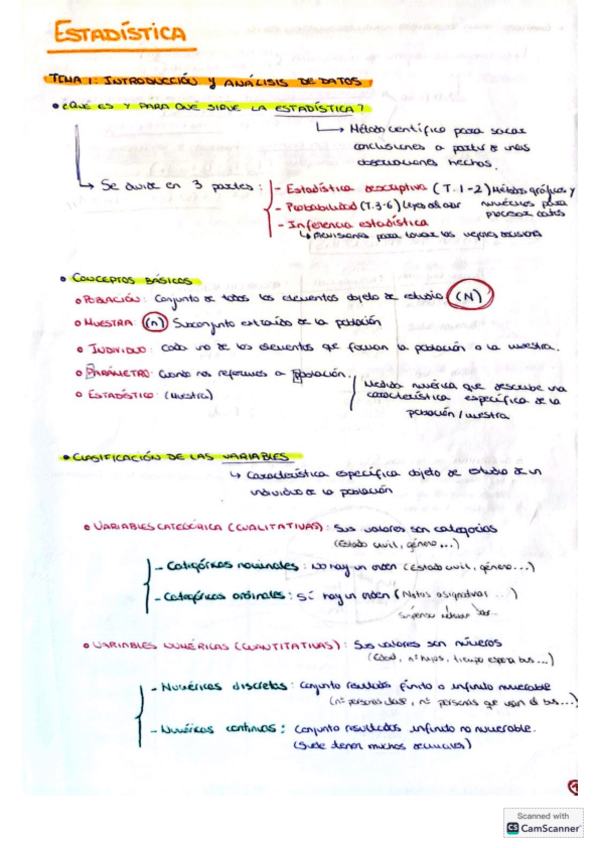 ESTADÍSTICA
TEMA 1: INTRODUCCIÓN Y ANÁLISIS DE DATOS
• ¿QUÉ ES Y PARA QUÉ SIRVE LA ESTADÍSTICA?
↳ Método científico para sacar
conclusiones a partir de unas
observaciones hechas.
↳ Se divide en 3 partes:
- Estadística descriptiva (T. 1-2) Métodos gráficos y
numéricos para
procesar datos
- Probabilidad (T.3-6) Leyes del azar
- Inferencia estadística
↳ para tomar las mejores
• CONCEPTOS BÁSICOS
• POBLACIÓN: Conjunto de todos los elementos objeto de estudio (N)
• MUESTRA: (n) Subconjunto extraído de la población
• INDIVIDUO: Cada uno de los elementos que forman la población o la muestra.
• PARÁMETRO: Cuando nos referimos a Población.
• ESTADÍSTICO: (Muestra)
Medida numérica que describe una
característica específica de la
población/muestra
• CLASIFICACIÓN DE LAS VARIABLES
↳ Característica específica objeto de estudio de un
individuo de la población
• VARIABLES CATEGÓRICA (CUALITATIVAS): Sus valores son categorías
(Estado civil, género...)
- Categóricas nominales: No hay un orden (Estado civil, género...)
- Categóricas ordinales: Sí hay un orden (Notas asignaturas ...)
• VARIABLES NUMÉRICAS (CUANTITATIVAS): Sus valores son números
(Edad, nº hijos, tiempo espera bus...)
- Numéricas discretas: Conjunto resultados finito o infinito numerable
(nº personas clase, nº personas que van el bus...)
- Numéricas continuas: Conjunto resultados infinito no numerable.
(Suele tener muchos decimales)
Scanned with
CS CamScanner